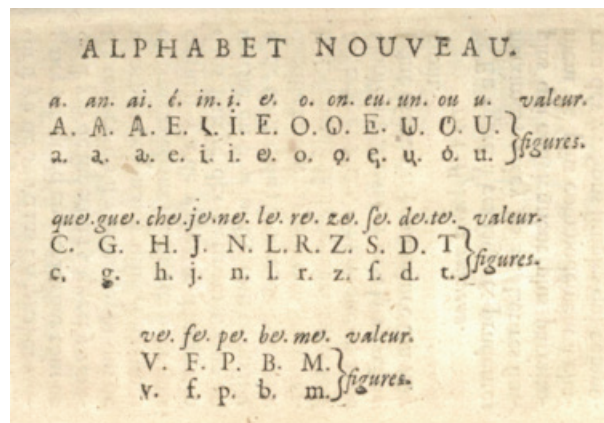 ALPHABET NOUVEAU.
a. an. ai. é. in. i. e. o. on. eu. un. ou u. valeur.
A. A. A. E. I. I. E. O. O. E. U. O. U. } figures.
a. a. a. e. i. i. e. o. o. e. u. o. u.
que. gue. che. je. ne. le. re. ze. ſe. de. te. valeur.
C. G. H. J. N. L. R. Z. S. D. T } figures.
c. g. h. j. n. l. r. z. ſ. d. t.
ve. fe. pe. be. me. valeur.
V. F. P. B. M. } figures.
v. f. p. b. m.